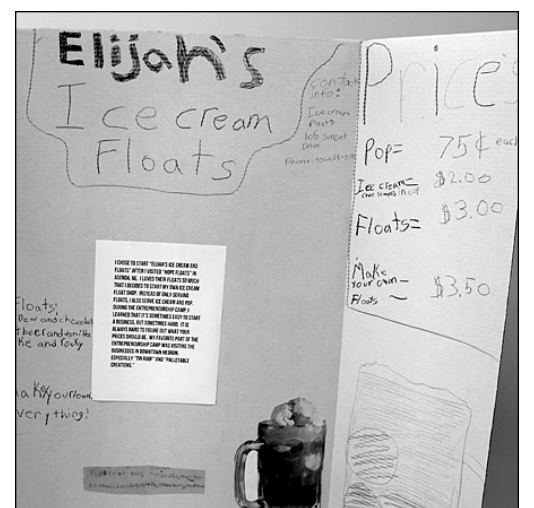 Elijah's
Ice cream
Floats
contact
info:
Icecream
floats
Sunset
Drive
Phone:
Price's
Pop= 75¢ each
Ice cream= $2.00
Floats= $3.00
Make
your own— $3.50
Floats
I CHOSE TO START "ELIJAH'S ICE CREAM AND
FLOATS" AFTER I VISITED "HOPE FLOATS" IN
AGENDA, NE. I LOVED THEIR FLOATS SO MUCH
THAT I DECIDED TO START MY OWN ICE CREAM
FLOAT SHOP. INSTEAD OF ONLY SERVING
FLOATS, I ALSO SERVE ICE CREAM AND POP.
DURING THE ENTREPRENEURSHIP CAMP, I
LEARNED THAT IT'S SOMETIMES EASY TO START
A BUSINESS, BUT SOMETIMES HARD. IT IS
ALWAYS HARD TO FIGURE OUT WHAT YOUR
PRICES SHOULD BE. MY FAVORITE PART OF THE
ENTREPRENEURSHIP CAMP WAS VISITING THE
BUSINESSES IN DOWNTOWN HEBRON,
ESPECIALLY "TIN ROOF" AND "PALLETABLE
CREATIONS."
Floats:
Dew and chocolat
tbeer and vanilla
ke and rocky
akeyourown:
very thing!